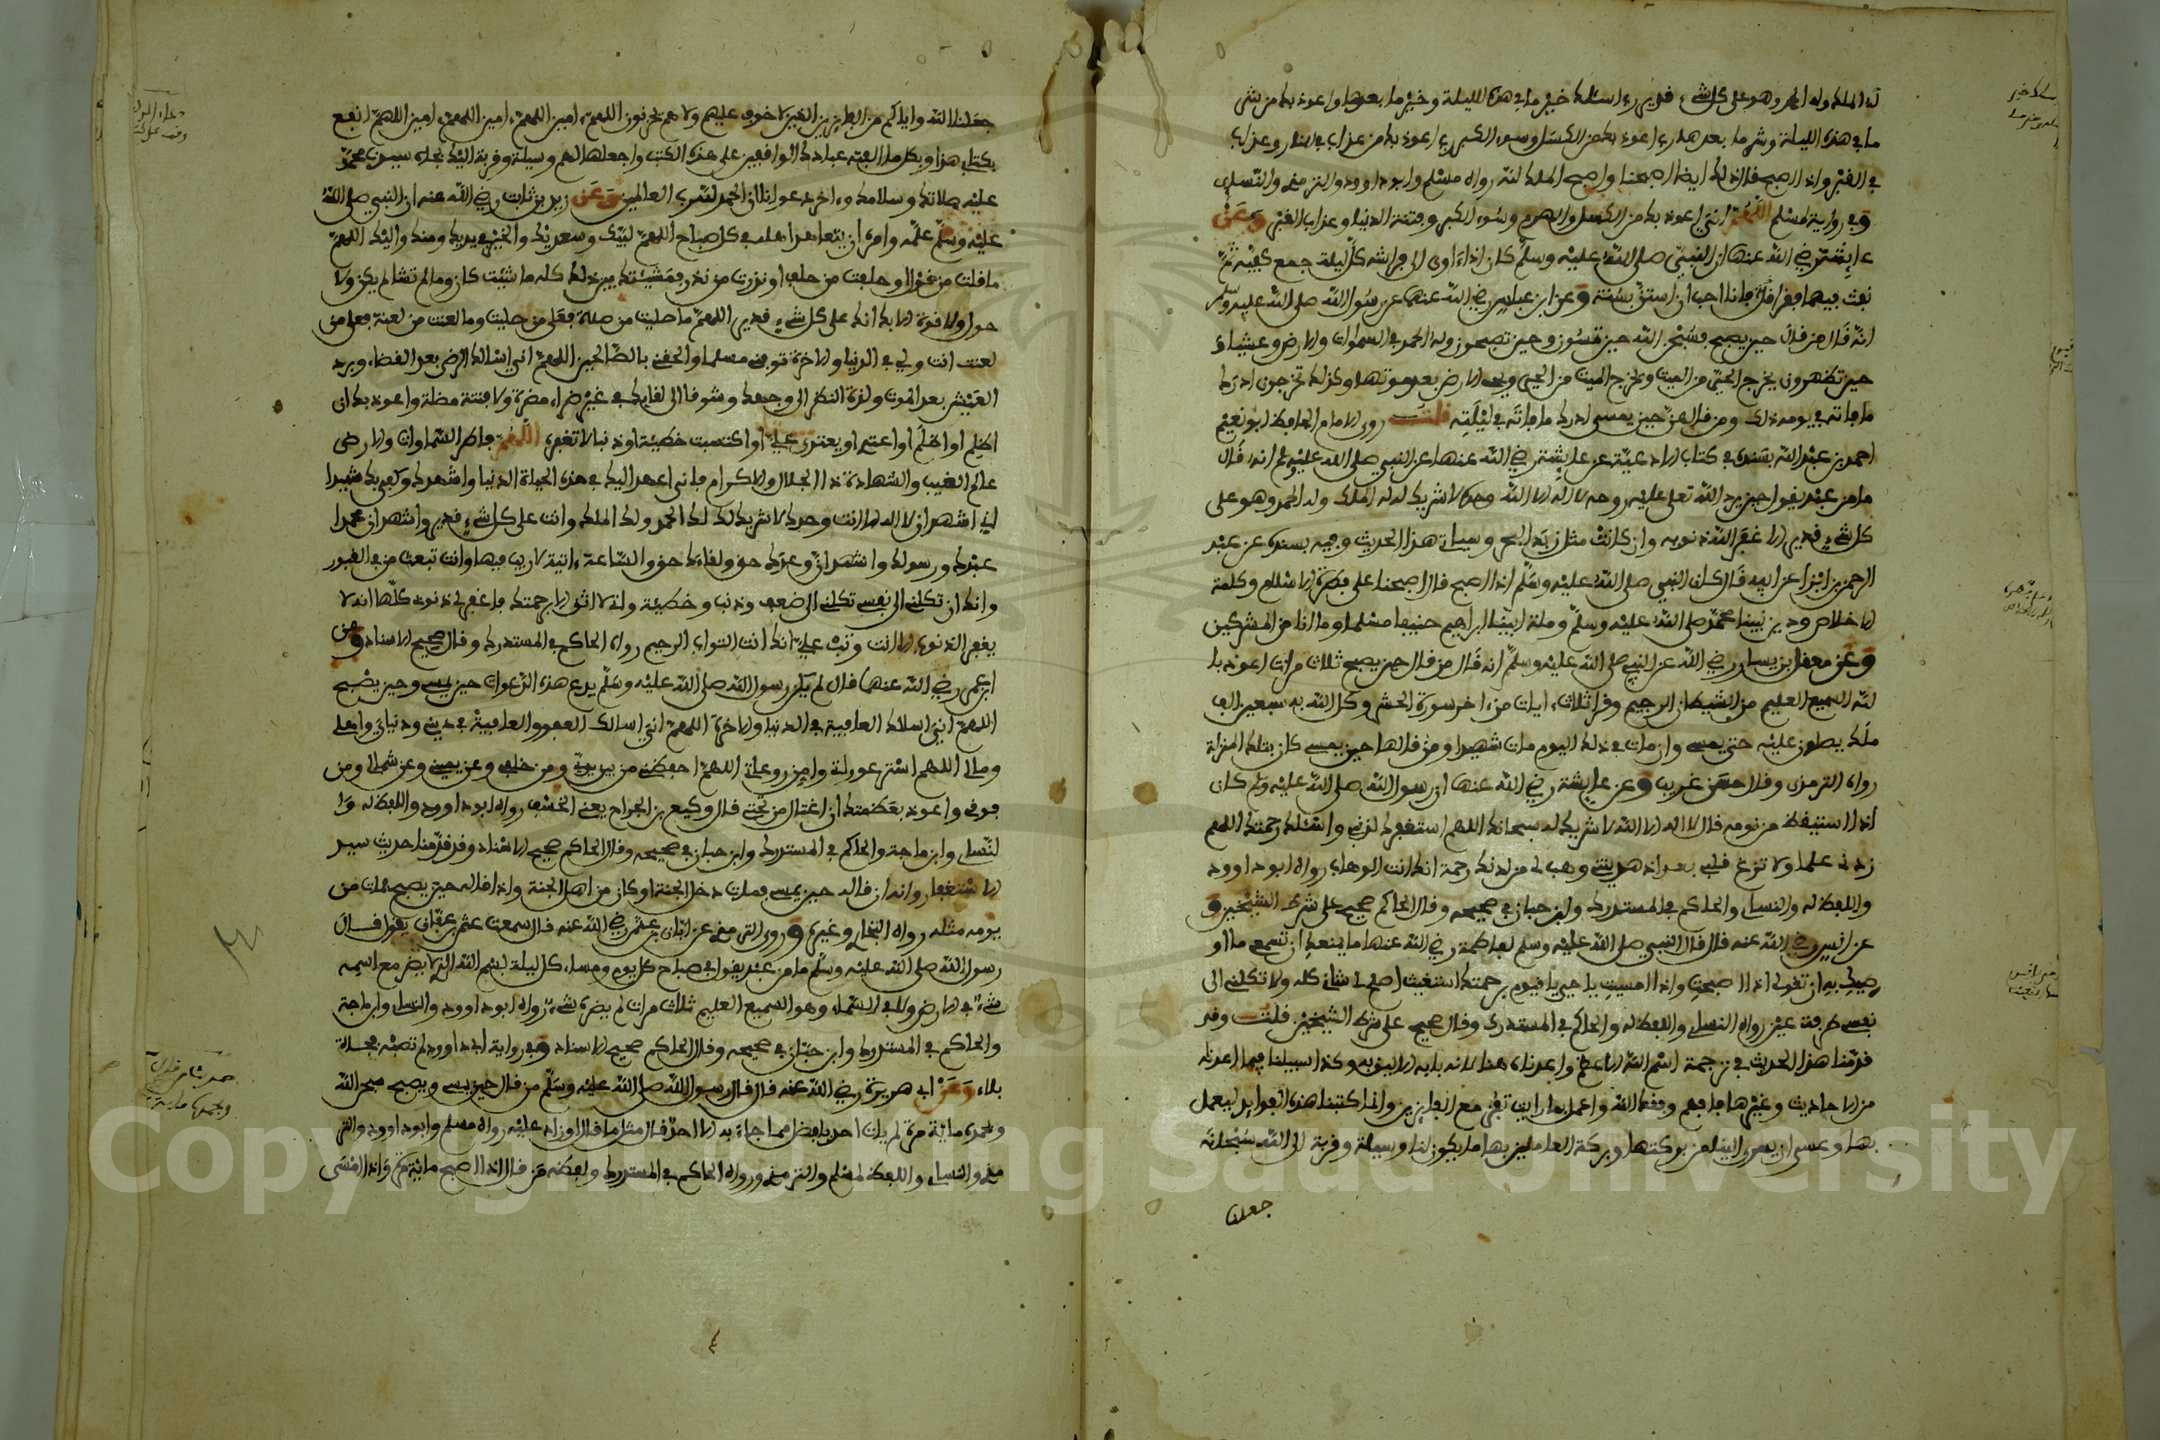 له الملك وله الحمد وهو على كل شيء قدير رب اسألك خير ما في هذه الليلة وخير ما بعدها واعوذ بك من شر
ما في هذه الليلة وشر ما بعدها رب اعوذ بك من الكسل وسوء الكبر رب اعوذ بك من عذاب في النار وعذاب
في القبر واذا اصبح قال ذلك ايضا اصبحنا واصبح الملك لله رواه مسلم وابو داوود والترمذي والنسائي
وفي رواية لمسلم اللهم اني اعوذ بك من الكسل والهرم وسوء الكبر وفتنة الدنيا وعذاب القبر وعن
عايشة رضي الله عنها ان النبي صلى الله عليه وسلم كان اذا اوى الى فراشه كل ليلة جمع كفيه ثم
نفث فيهما فقرا وعن ابن عباس رضي الله عنهما عن رسول الله صلى الله عليه وسلم
انه قال من قال حين يصبح فسبحن الله حين تمسون وحين تصبحون وله الحمد في السموات والارض وعشيا و
حين تظهرون يخرج الحي من الميت ويخرج الميت من الحي ويحي الارض بعد موتها وكذلك تخرجون ادرك
ما فاته في يومه ذلك ومن قالهن حين يمسي ادرك ما فاته في ليلته قلت روى الامام الحافظ ابو نعيم
احمد بن عبد الله بسنده في كتاب الادعية عن عايشة رضي الله عنها عن النبي صلى الله عليه وسلم انه قال
ما من عبد يقول حين يرد الله تعلى عليه روحه لا اله الا الله وحده لا شريك له له الملك وله الحمد وهو على
كل شيء قدير الا غفر الله ذنوبه وان كانت مثل زبد البحر وسياتي هذا الحديث وفيه بسنده عن عبد
الرحمن بن ابزا عن ابيه قال كان النبي صلى الله عليه وسلم اذا اصبح قال اصبحنا على فطرة الاسلام وكلمة
الاخلاص ودين نبينا محمد صلى الله عليه وسلم وملة ابينا ابراهيم حنيفا مسلما وما انا من المشركين
وعن معقل بن يسار رضي الله عن النبي صلى الله عليه وسلم انه قال من قال حين يصبح ثلاث مرات اعوذ با
لله السميع العليم من الشيطان الرجيم وقرا ثلاث ايات من اخر سورة الحشر وكل الله به سبعين الف
ملك يصلون عليه حتى يمسي وان مات في ذلك اليوم مات شهيدا ومن قالها حين يمسي كان بتلك المنزلة
رواه الترمذي وقال حسن غريب وعن عايشة رضي الله عنها ان رسول الله صلى الله عليه وسلم كان
اذا استيقظ من نومه قال لا اله الا الله لا شريك له سبحانك اللهم استغفرك لذنبي واسئلك رحمتك اللهم
زدني علما ولا تزغ قلبي بعد اذ هديتني وهب لي من لدنك رحمة انك انت الوهاب رواه ابو داوود
واللفظ له والنسائي والحاكم في المستدرك وابن حبان في صحيحه وقال الحاكم صحيح على شرط الشيخين و
عن انس رضي الله عنه قال قال النبي صلى الله عليه وسلم لفاطمة رضي الله عنها ما يمنعك ان تسمع ما او
صيك به ان تقولي اذا اصبحت واذا امسيت يا حي يا قيوم برحمتك استغيث اصلح لي شاني كله ولا تكلني الى
نفسي طرفة عين رواه النسائي واللفظ له والحاكم في المستدرك وقال صحيح على شرط الشيخين قلت وقد
قدمنا هذا الحديث في ترجمة اسم الله الاعظم واعدناه هنا لانه بابه الاليق به وكذا سبيلنا فيما اعدناه
من الاحاديث وغيرها فافهم وفقك الله واعمل بما رايت تفز مع الفايزين وانما كتبنا هذه الفوايد ليعمل
بها وعسى ان يعود الينا من بركتها وبركة العاملين بها ما يكون لنا وسيلة وقربة الى الله سبحانه
جعلنا
جعلنا الله واياكم من الفايزين الذين لا خوف عليهم ولا هم يحزنون اللهم امين اللهم امين اللهم امين اللهم انفع
بكتابي هذا وبكل ما الفته عبادك الواقفين على هذه الكتب واجعلها لهم وسيلة وقربة اليك بجاه سيدنا محمد
عليه صلاتك وسلامك واخر دعوانا ان الحمد لله رب العالمين وعن زيد بن ثابت رضي الله عنه ان النبي صلى الله
عليه وسلم علمه وامره ان يتعاهد اهله في كل صباح اللهم لبيك وسعديك والخير في يديك ومنك واليك اللهم
ما قلت من قول او حلفت من حلف او نذرت من نذر فمشيئتك بين يدي ذلك كله ما شئت كان وما لم تشا لم يكن ولا
حول ولا قوة الا بك انك على كل شيء قدير اللهم ما صليت من صلاة فعلى من صليت وما لعنت من لعنة فعلى من
لعنت انت وليي في الدنيا والاخرة توفني مسلما والحقني بالصالحين اللهم اني اسالك الرضى بعد القضاء وبرد
العيش بعد الموت ولذة النظر الى وجهك وشوقا الى لقايك في غير ضراء مضرة ولا فتنة مضلة واعوذ بك ان
اظلم او اظلم او اعتدي او يعتدى علي او اكتسب خطيئة او ذنبا لا تغفره اللهم فاطر السماوات والارض
عالم الغيب والشهادة ذا الجلال والاكرام فاني اعهد اليك في هذه الحياة الدنيا واشهدك وكفى بك شهيدا
اني اشهد ان لا اله الا انت وحدك لا شريك لك لك الحمد ولك الملك وانت على كل شيء قدير واشهد ان محمدا
عبدك ورسولك واشهد ان وعدك حق ولقاءك حق والساعة ءاتية لا ريب فيها وانت تبعث من في القبور
وانك ان تكلني الى نفسي تكلني الى ضعف وذنب وخطيئة واني لا اثق الا برحمتك فاغفر لي ذنوبي كلها انه لا
يغفر الذنوب الا انت وتب علي انك انت التواب الرحيم رواه الحاكم في المستدرك وقال صحيح الاسناد وعن
ابن عمر رضي الله عنهما قال لم يكن رسول الله صلى الله عليه وسلم يدع هذه الدعوات حين يمسي وحين يصبح
اللهم اني اسالك العافية في الدنيا والاخرة اللهم اني اسالك العفو والعافية في ديني ودنياي واهلي
ومالي اللهم استر عوراتي وامن روعاتي اللهم احفظني من بين يدي ومن خلفي وعن يميني وعن شمالي ومن
فوقي واعوذ بعظمتك ان اغتال من تحتي قال وكيع بن الجراح يعني الخسف رواه ابو داوود واللفظ له وا
لنسائي وابن ماجة والحاكم في المستدرك وابن حبان في صحيحه وقال الحاكم صحيح الاسناد وقد قدمنا حديث سيد
الاستغفار وانه ان قاله حين يمسي فمات دخل الجنة او كان من اهل الجنة واذا قاله حين يصبح فمات من
يومه مثله رواه البخاري وغيره وروى الترمذي عن ابان بن عثمن رضي الله عنه قال سمعت عثمن بن عفان يقول قال
رسول الله صلى الله عليه وسلم ما من عبد يقول في صباح كل يوم ومساء كل ليلة بسم الله الذي لا يضر مع اسمه
شيء في الارض ولا في السماء وهو السميع العليم ثلاث مرات لم يضره شيء رواه ابو داوود والنسائي وابن ماجة
والحاكم في المستدرك وابن حبان في صحيحه وقال الحاكم صحيح الاسناد وفي رواية ابي داوود لم تصبه فجاة
بلاء وعن ابي هريرة رضي الله عنه قال قال رسول الله صلى الله عليه وسلم من قال حين يمسي ويصبح سبحن الله
وبحمده ماية مرة لم يات احد بافضل مما جاء به الا احد قال مثل ما قال او زاد عليه رواه مسلم وابو داوود والتر
مذي والنسائي واللفظ لمسلم والترمذي ورواه الحاكم في المستدرك ولفظه من قال اذا اصبح ماية مرة واذا امسى
Copyright © King Saud University